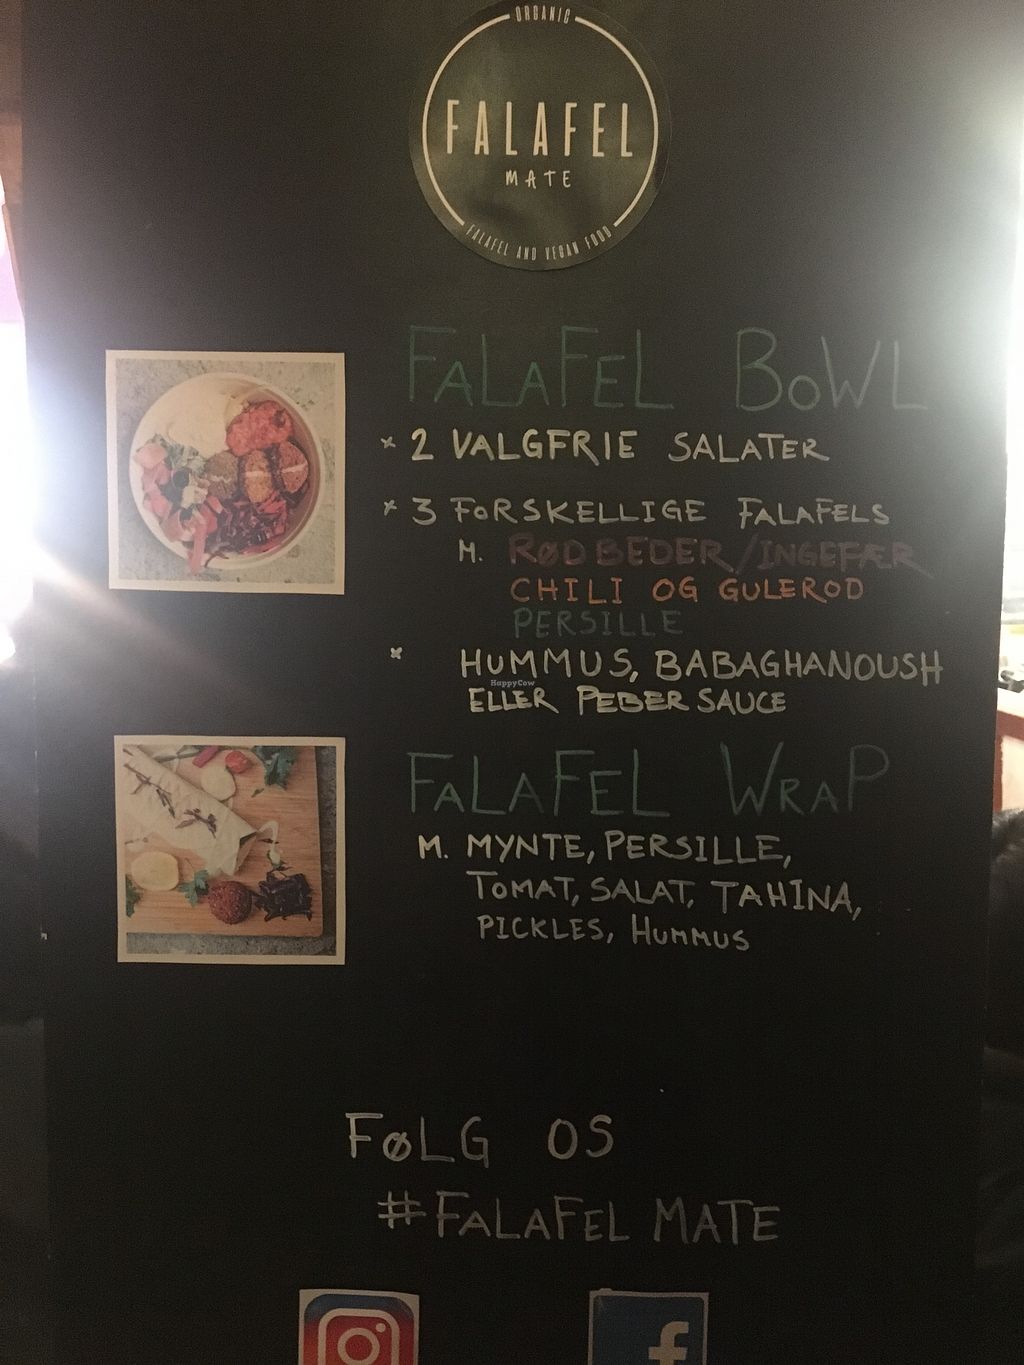 ORGANIC
FALAFEL
MATE
FALAFEL AND VEGAN FOOD
FALAFEL BOWL
× 2 VALGFRIE SALATER
× 3 FORSKELLIGE FALAFELS
M. RØDBEDER/INGEFÆR
CHILI OG GULEROD
PERSILLE
× HUMMUS, BABAGHANOUSH
HappyCow
ELLER PEBER SAUCE
FALAFEL WRAP
M. MYNTE, PERSILLE,
TOMAT, SALAT, TAHINA,
PICKLES, HUMMUS
FØLG OS
#FALAFEL MATE
f